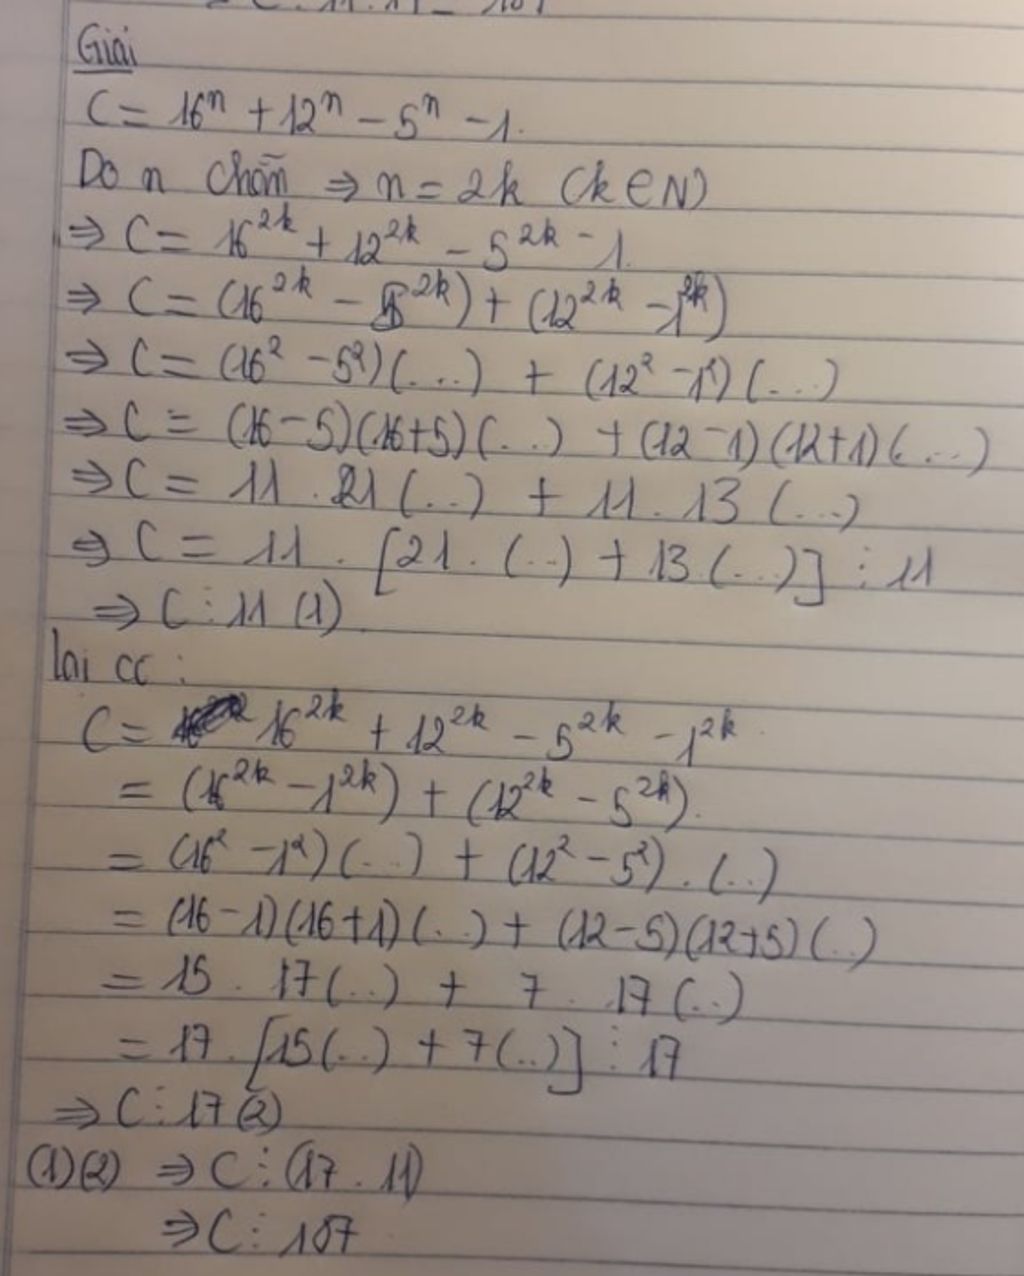 = C ⋮ 11 . 17 = 187
Giải
C = 16ⁿ + 12ⁿ - 5ⁿ - 1.
Do n chẵn ⇒ n = 2k (k ∈ N)
⇒ C = 16^2k + 12^2k - 5^2k - 1.
⇒ C = (16^2k - 5^2k) + (12^2k - 1^2k)
⇒ C = (16² - 5²)(...) + (12² - 1²)(...)
⇒ C = (16-5)(16+5)(...) + (12-1)(12+1)(...)
⇒ C = 11 . 21 (..) + 11 . 13 (...)
⇒ C = 11 . [21 . (..) + 13 . (...)] ⋮ 11
⇒ C ⋮ 11 (1)
lại cc :
C = 16^2k + 12^2k - 5^2k - 1^2k
= (16^2k - 1^2k) + (12^2k - 5^2k).
= (16² - 1²)(...) + (12² - 5²) . (..)
= (16-1)(16+1)(..) + (12-5)(12+5)(..)
= 15 . 17(..) + 7 . 17(..)
= 17 . [15(..) + 7(..)] ⋮ 17
⇒ C ⋮ 17 (2)
(1)(2) ⇒ C ⋮ (17 . 11)
⇒ C ⋮ 187